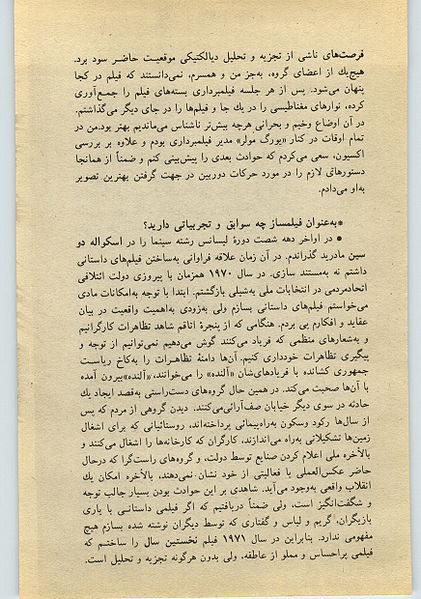 فرصت‌های ناشی از تجزیه و تحلیل دیالکتیکی موقعیت حاضر سود برد.
هیچ‌یك از اعضای گروه، به‌جز من و همسرم، نمی‌دانستند که فیلم در کجا
پنهان می‌شود. پس از هر جلسه فیلمبرداری بسته‌های فیلم را جمع‌آوری
کرده، نوارهای مغناطیسی را در یك جا و فیلم‌ها را در جای دیگر می‌گذاشتم.
در آن اوضاع وخیم و بحرانی هرچه بیش‌تر ناشناس می‌ماندیم بهتر بود.من در
تمام اوقات در کنار «یورگ مولر» مدیر فیلمبرداری بودم و علاوه بر بررسی
اکسیون، سعی می‌کردم که حوادث بعدی را پیش‌بینی کنم و ضمناً از همانجا
دستورهای لازم را در مورد حرکات دوربین در جهت گرفتن بهترین تصویر
به‌او می‌دادم.
*به‌عنوان فیلمساز چه سوابق و تجربیاتی دارید؟
● در اواخر دهه شصت دورۀ لیسانس رشته سینما را در اسکواله دو
سین مادرید گذراندم. در آن زمان علاقه فراوانی به‌ساختن فیلم‌های داستانی
داشتم نه به‌مستند سازی. در سال ۱۹۷۰ همزمان با پیروزی دولت ائتلافی
اتحادمردمی در انتخابات ملی به‌شیلی بازگشتم. ابتدا با توجه به‌امکانات مادی
می‌خواستم فیلم‌های داستانی بسازم ولی به‌زودی به‌اهمیت واقعیت در بیان
عقاید و افکارم پی بردم. هنگامی که از پنجرۀ اتاقم شاهد تظاهرات کارگرانیم
و به‌شعارهای منظمی که فریاد می‌کنند گوش می‌دهیم نمی‌توانیم از توجه و
پیگیری تظاهرات خودداری کنیم. آن‌ها دامنۀ تظاهـرات را به‌کاخ ریاسـت
جمهوری کشانده با فریادهای‌شان «آلنده» را می‌خوانند،«آلنده»بیرون آمده
با آن‌ها صحبت می‌کند. در همین حال گروه‌های دست‌راستی به‌قصد ایجاد یك
حادثه در سوی دیگر خیابان صف‌آرائی‌می‌کنند. دیدن گروهی از مردم که پس
از سال‌ها رکود وسکون به‌راه‌پیمائی پرداخته‌اند، روستائیانی که برای اشغال
زمین‌ها تشکیلاتی به‌راه می‌اندازند، کارگران که کارخانه‌ها را اشغال می‌کنند و
بالأخره ملی اعلام کردن صنایع توسط دولت، و گروه‌های راست‌گرا که درحال
حاضر عکس‌العملی یا فعالیتی از خود نشان‌ نمی‌دهند، بالأخره امکان یك
انقلاب واقعی به‌وجود می‌آید. شاهدی بر این حوادث بودن بسیار جالب توجه
و شگفت‌انگیز است. ولی ضمناً دریافتیم که اگر فیلمی داستانـی با یاری
بازیگران، گریم و لباس و گفتاری که توسط دیگران نوشته شده بسازم هیچ
مفهومی ندارد. بنابراین در سال ۱۹۷۱ فیلم نخستین سال را ساختـم که
فیلمی پراحساس و مملو از عاطفه، ولی بدون هرگونه تجزیه و تحلیل است.